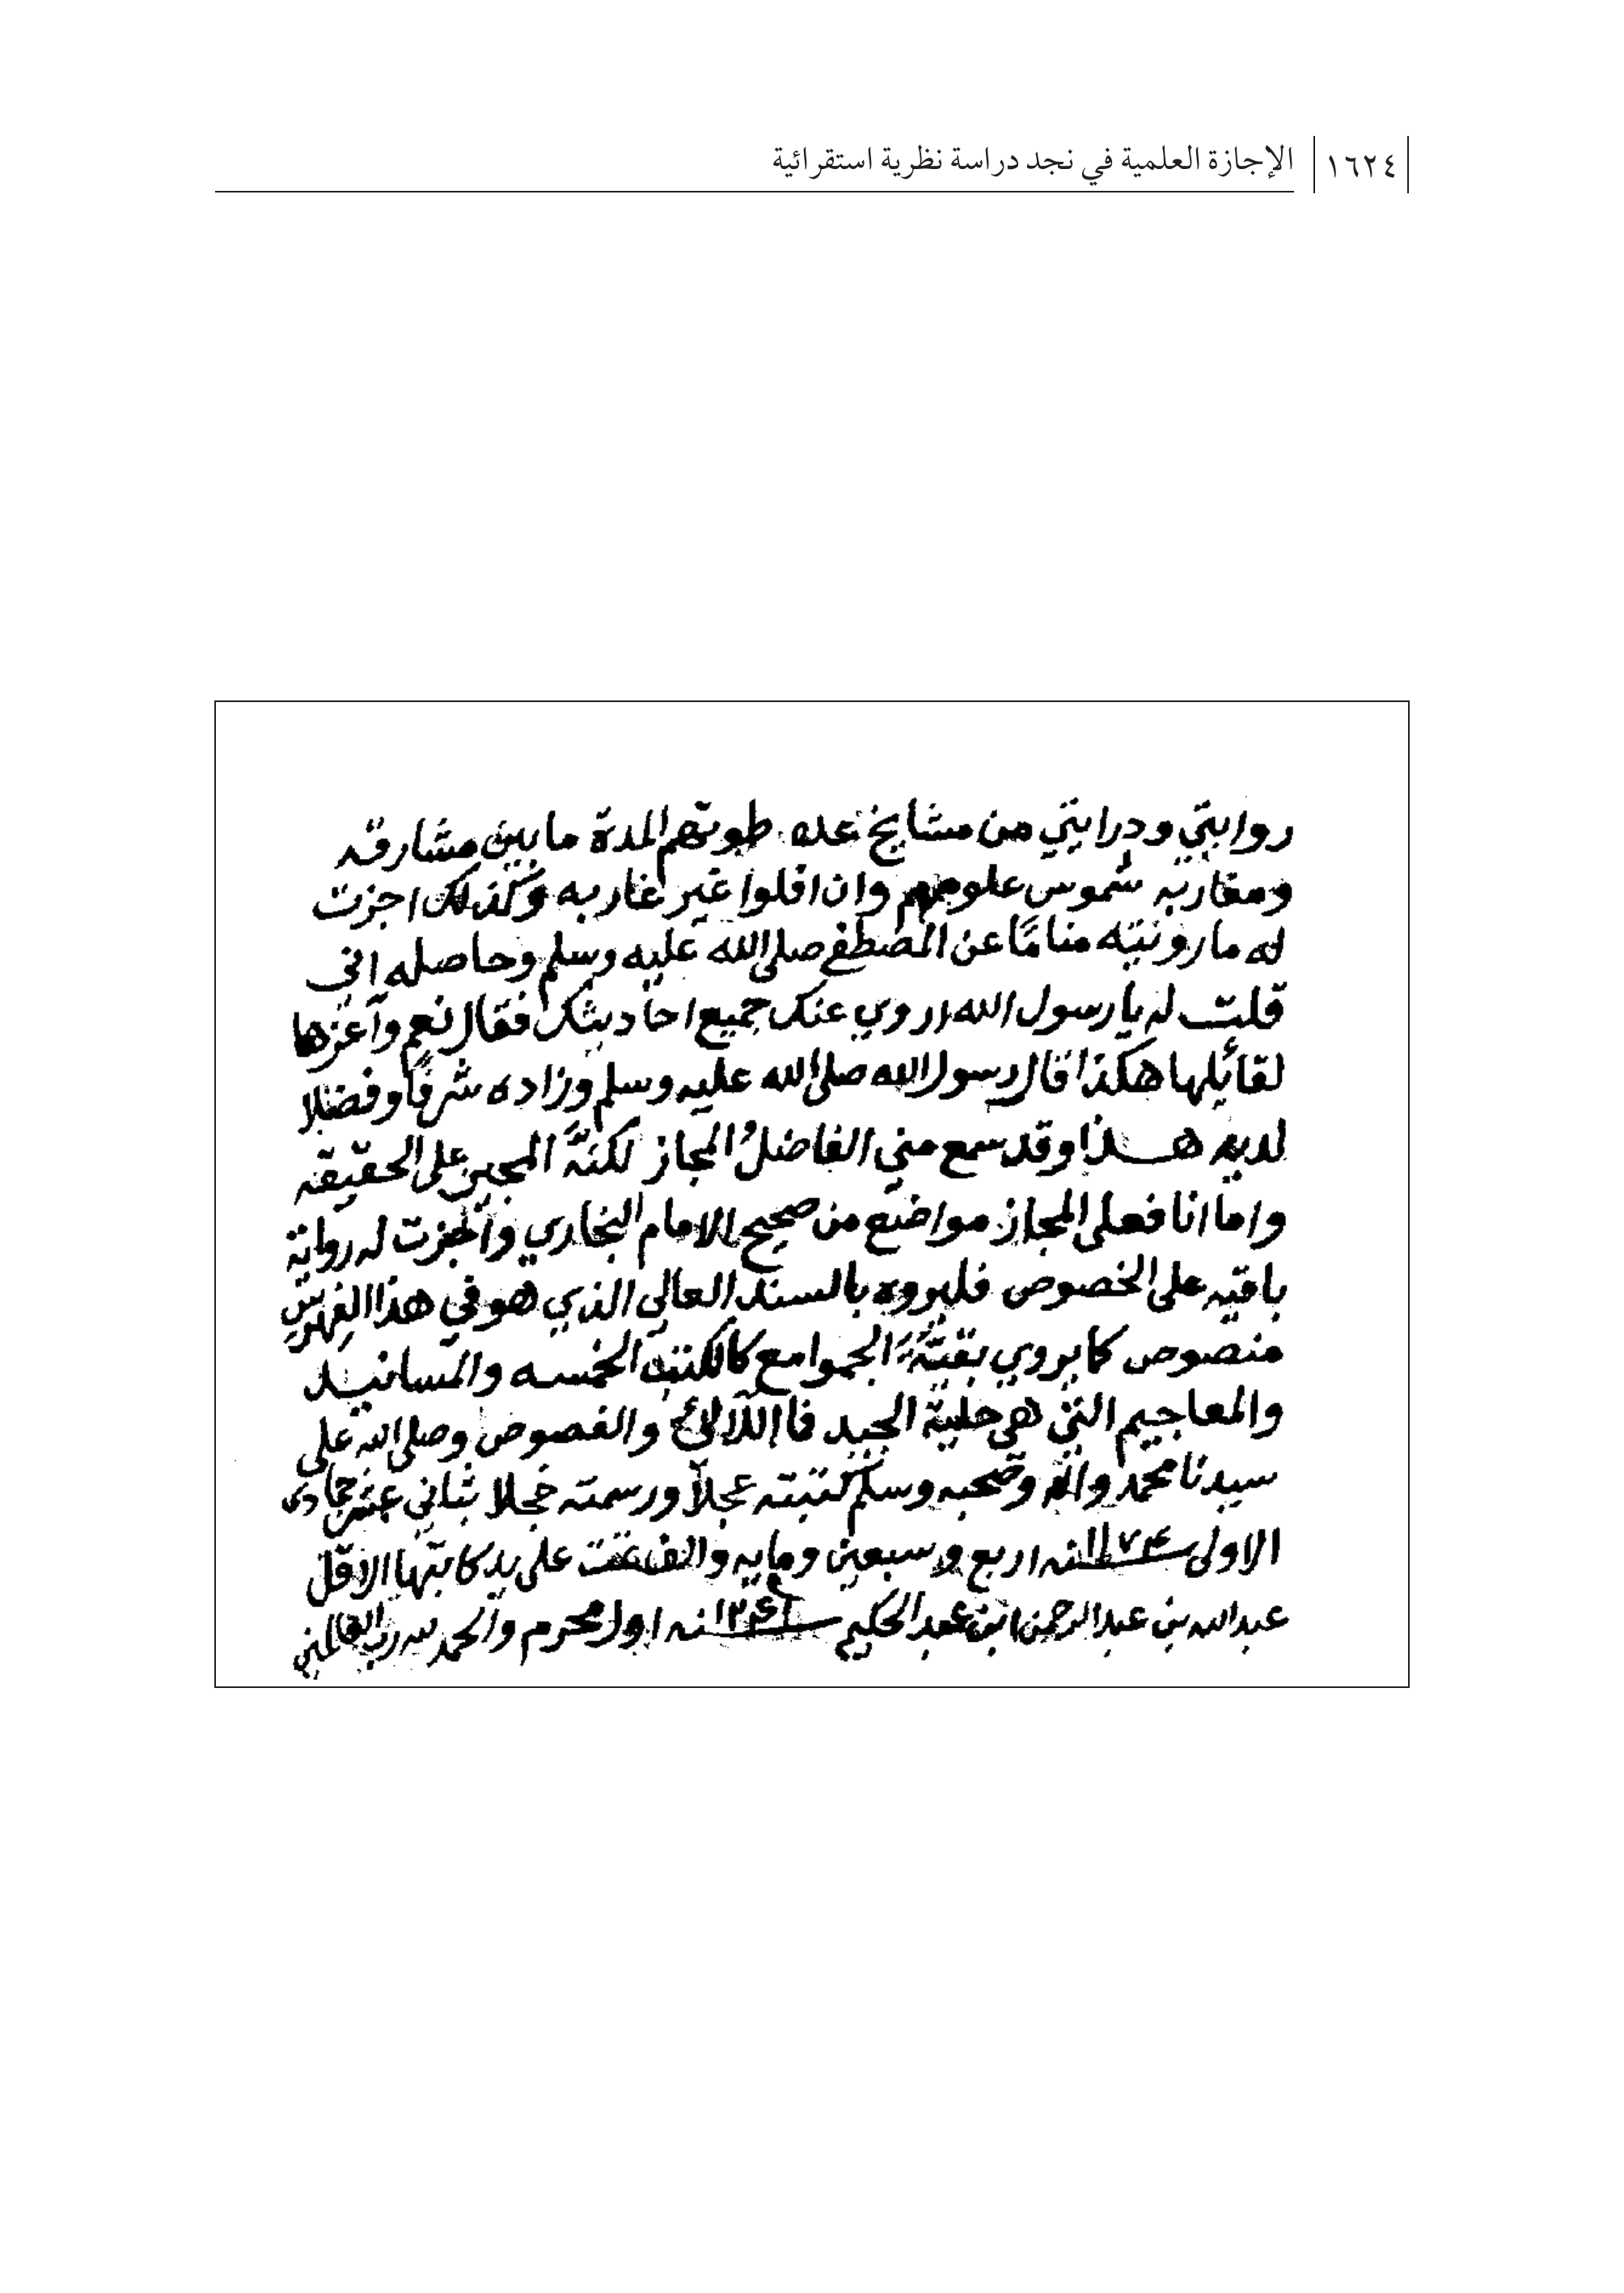 ١٦٢٤ الإجازة العلمية في نجد دراسة نظرية استقرائية
روايتي ودرايتي من مشايخ عده طوتهم المدة ما بين مشارقه
ومغاربه شموس علومهم وان افلوا غير غاربه وكذلك اجزت
له ما رونيته مناما عن المصطفى صلى الله عليه وسلم وحاصله اني
قلت له يا رسول الله اروي عنك جميع احاديثك فقال نعم وآعزها
لقائلها هكذا قال رسول الله صلى الله عليه وسلم وزاده شرفا وفضلا
لديه هذا وقد سمع مني الفاضلُ المجاز لكنَّه المجيز على الحقيقه
واما انا فعلى المجاز مواضع من صحيح الامام البخاري واجزت له رواية
باقيه على الخصوص فليروه بالسند العالي الذي هو في هذا الفهرس
منصوص كما يروي بقيَّة الجوامع كالكتب الخمسه والمسانيد
والمعاجيم التي هي حلية الجيد فما اللآلئ والفصوص وصلى الله على
سيدنا محمد واله وصحبه وسلم كتبته عجلاً ورسمته خجلا ثاني عشر جمادى
الاولى ١١٧٤ سنه اربع وسبعين ومايه والف تمت على يد كاتبها الاقل
عبد الله بن عبد الرحمن ابن عبد الحكيم سنه اول محرم والحمد لله رب العالمين